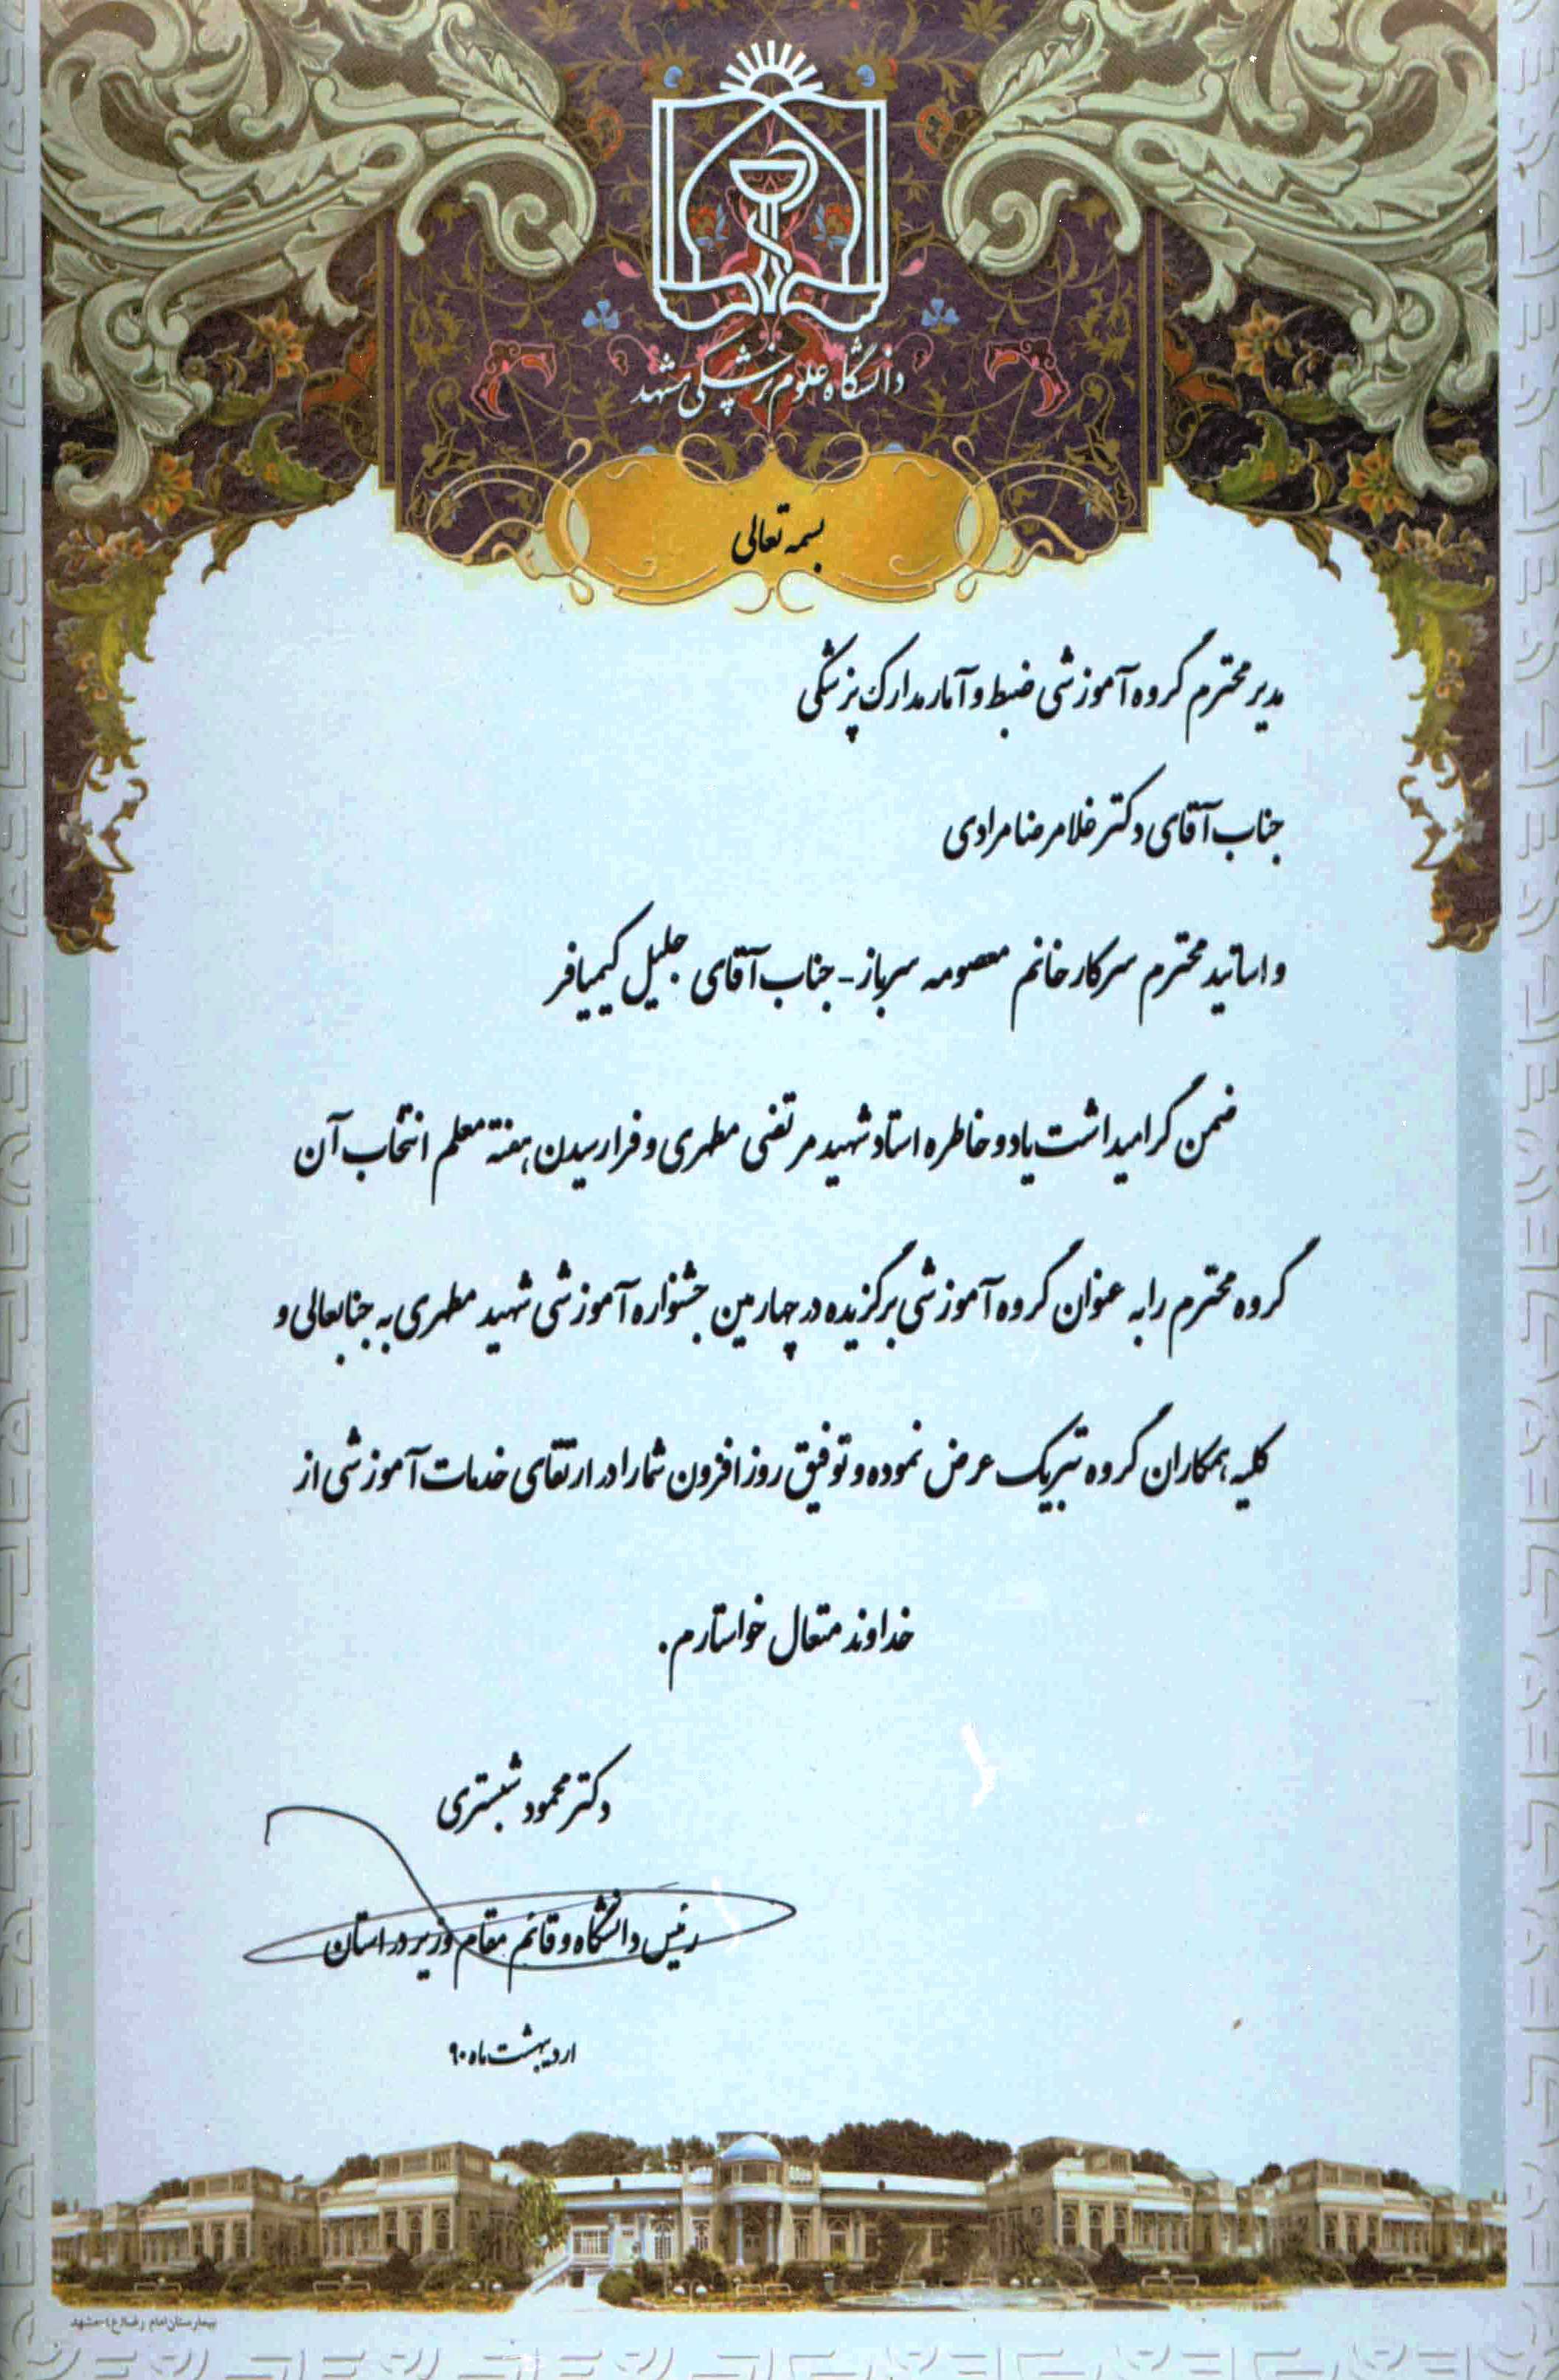 دانشگاه علوم پزشکی مشهد
بسمه تعالی
مدیر محترم گروه آموزشی ضبط و آمار مدارک پزشکی
جناب آقای دکتر غلامرضا مرادی
و اساتید محترم سرکار خانم معصومه سرباز - جناب آقای جلیل کیمیافر
ضمن گرامیداشت یاد و خاطره استاد شهید مرتضی مطهری و فرا رسیدن هفته معلم انتخاب آن
گروه محترم را به عنوان گروه آموزشی برگزیده در چهارمین جشنواره آموزشی شهید مطهری به جنابعالی و
کلیه همکاران گروه تبریک عرض نموده و توفیق روز افزون شما را در ارتقای خدمات آموزشی از
خداوند متعال خواستارم.
دکتر محمود شبستری
رئیس دانشگاه و قائم مقام وزیر در استان
اردیبهشت ماه ۹۰
بیمارستان امام رضا(ع)-مشهد